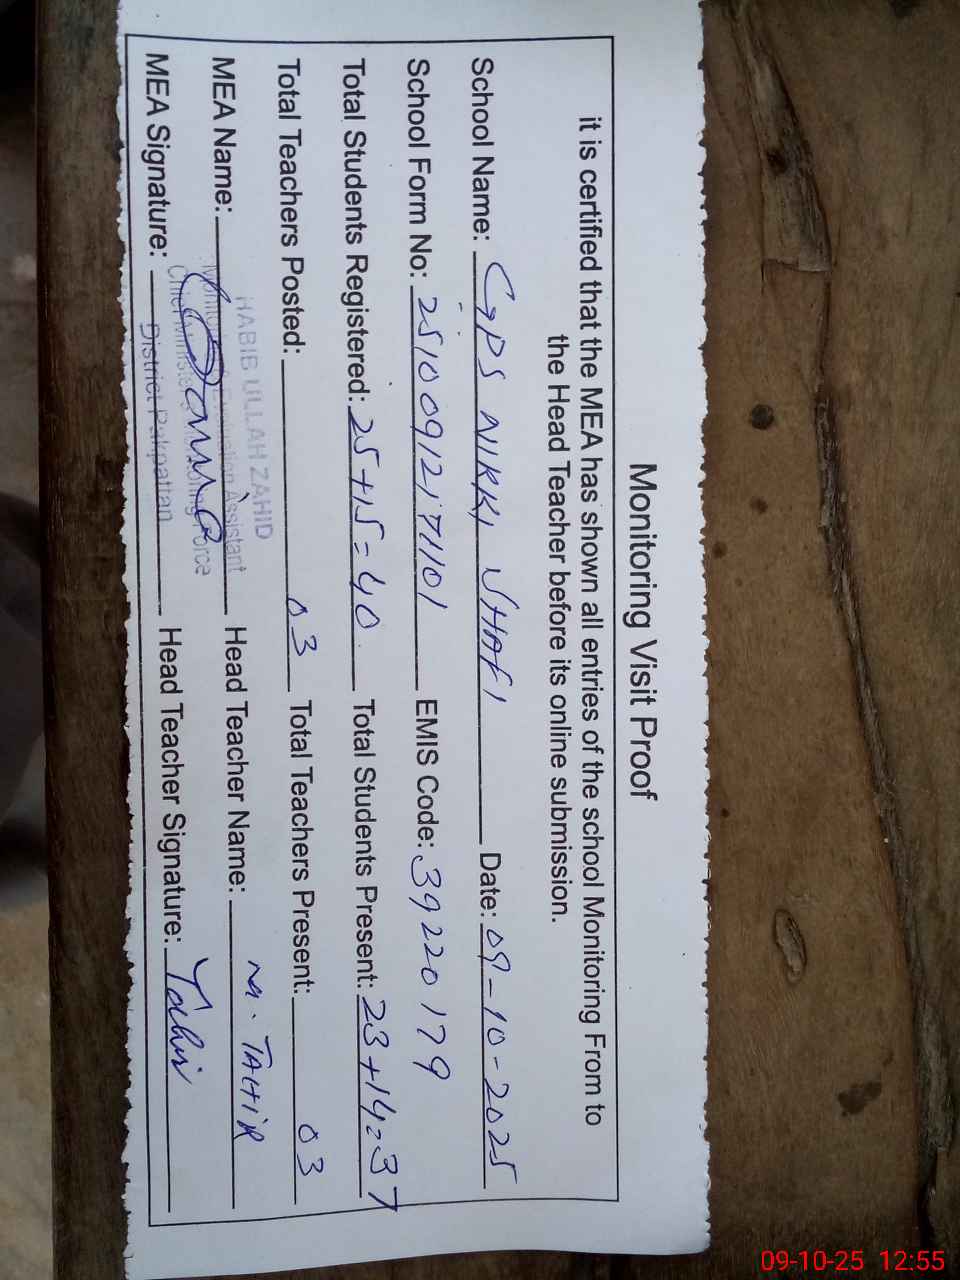 Monitoring Visit Proof
it is certified that the MEA has shown all entries of the school Monitoring From to
the Head Teacher before its online submission.
School Name: GPS NIKKI UHAFI Date: 09-10-2025
School Form No: 25100912171101 EMIS Code: 39220179
Total Students Registered: 25+15=40 Total Students Present: 23+14=37
Total Teachers Posted: 03 Total Teachers Present: 03
HABIB ULLAH ZAHID
MEA Name: Head Teacher Name: M. TAHIR
Monitoring & Evaluation Assistant
Chief Minister's Monitoring Force
MEA Signature: Head Teacher Signature: Tahir
District Pakpattan
09-10-25 12:55